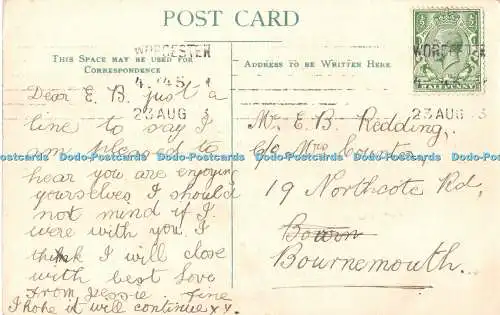 POST CARD
THIS SPACE MAY BE USED FOR
CORRESPONDENCE
ADDRESS TO BE WRITTEN HERE
WORCESTER
4. 45
23 AUG 3
WORCESTER
4.
23 AUG 3
HALFPENNY
Dear E. B. just a
line to say I
am pleased to
hear you are enjoying
yourselves I should
not mind if I
were with you. I
think I will close
with best love
from Jessie. fine
I hope it will continue xx.
Mr. E. B. Redding,
c/o Mrs
19 Northcote Rd,
Bourn
Bournemouth.
Dodo-Postcards Dodo-Postcards Dodo-Postcards Dodo-Postcards Dodo-Postcards Dodo-Postcards